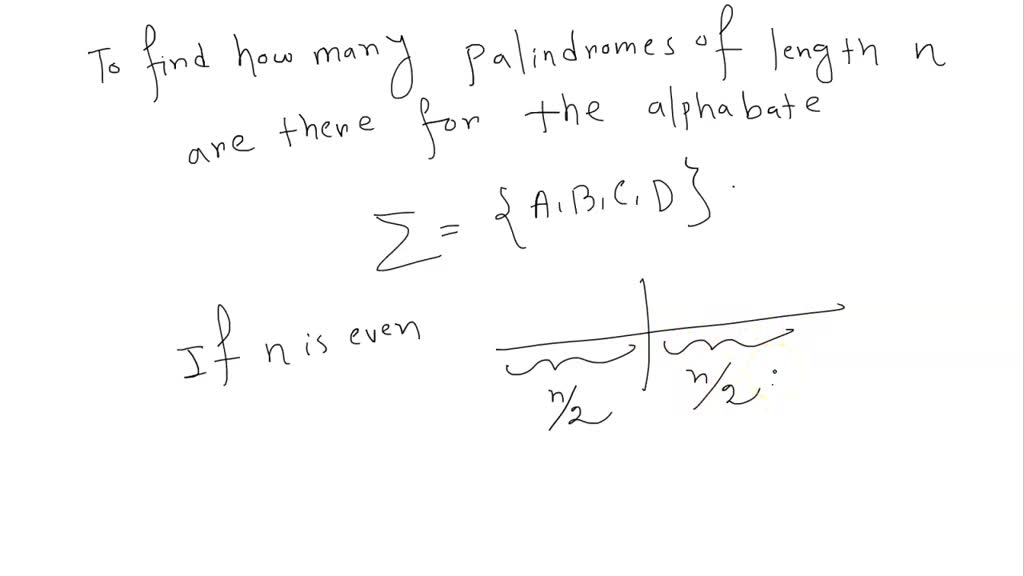 To find how many palindromes of length n
are there for the alphabate
Σ = {A, B, C, D}.
If n is even
n/2 n/2